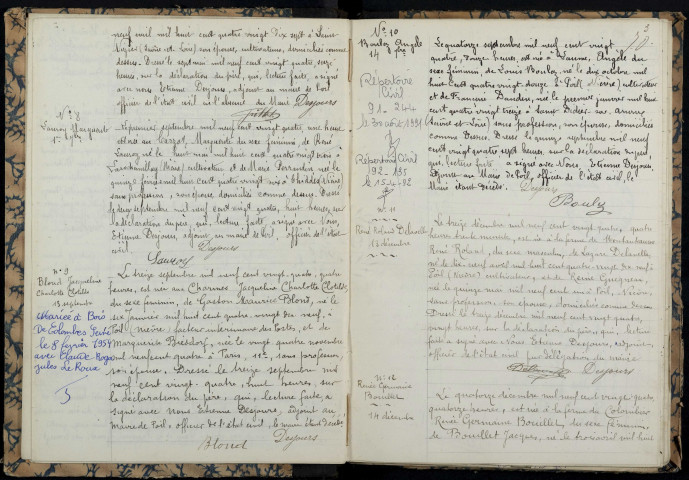 neuf mil huit cent quatre vingt dix sept à Saint
(Saône et Loire) son épouse, cultivateurs, domiciliés comme
dessus. Dressé le sept mai mil neuf cent vingt quatre, seize
heures, sur la déclaration du père, qui, lecture faite, a signé
avec nous Etienne Desjours, adjoint au maire de Poil
officier de l'état civil en l'absence du Maire Desjours
N° 8
Lauroy Marguerite
1er Septembre
Le premier septembre mil neuf cent vingt quatre, une heure
est née au Marguerite du sexe féminin de René
Lauroy né le huit mai mil huit cent quatre vingt
(Nièvre) cultivateur et de Marie
quinze mil huit cent quatre vingt (Nièvre)
sans profession, son épouse domiciliés comme dessus. Dressé
le deux septembre mil neuf cent vingt quatre, huit heures, sur
la déclaration du père, qui, lecture faite, a signé avec nous,
Etienne Desjours, adjoint au maire de Poil, officier de l'état
civil
Desjours
Lauroy
N° 9
Blond Jacqueline
Charlotte Clotilde
13 septembre
Mariée à Bois
De Colombes Seine
le 8 février 1954
avec Claude Roger
Jules Le Roux
Le treize septembre mil neuf cent vingt-quatre, quatre
heures, est née aux Charmes Jacqueline Charlotte Clotilde
du sexe féminin, de Gaston Maurice Blond, né le
six janvier mil huit cent quatre vingt dix neuf, à
Poil (Nièvre) facteur intérimaire des Postes, et de
Marguerite née le vingt quatre novembre
mil neuf cent quatre à Paris, 11e, sans profession,
son épouse. Dressé le treize septembre mil
neuf cent vingt-quatre, huit heures, sur
la déclaration du père, qui, lecture faite, a
signé avec nous Etienne Desjours, adjoint au
maire de Poil, officier de l'état civil, le maire étant décédé.
Blond Desjours
N° 10
Boulez Angèle
14 7bre
Répertoire
Civil
91-244
le 30 août 1991
Répertoire Civil
92-135
Le quatorze septembre mil neuf cent vingt
quatre, douze heures, est née à Angèle du
sexe féminin de Louis Boulez, né le dix octobre mil
huit cent quatre vingt douze à Poil (Nièvre) cultivateur
et de Francine née le premier janvier mil huit
cent quatre vingt
(Saône et Loire) sans profession, son épouse, domiciliés
comme dessus. Dressé le quinze septembre mil neuf cent
vingt quatre sept heures, sur la déclaration du père
qui, lecture faite a signé avec Nous, Etienne Desjours,
Adjoint au Maire de Poil, officier de l'état civil, le
Maire étant décédé. Desjours
Boulez
N° 11
René Roland
13 décembre
Le treize décembre mil neuf cent vingt quatre, quatre
heures est né à la ferme de
René Roland, du sexe masculin, de Lazare
né le dix neuf août mil huit cent quatre vingt dix neuf à
Poil (Nièvre) cultivateur, et de Renée
née le quinze mai mil neuf cent un à Poil, Nièvre,
sans profession, son épouse, domiciliés comme dessus.
Dressé le treize décembre mil neuf cent vingt quatre,
vingt heures, sur la déclaration du père qui, lecture
faite a signé avec Nous Etienne Desjours, adjoint,
officier de l'état civil par délégation du maire
Desjours
N° 12
Renée Germaine
Bouillet
14 décembre
Le quatorze décembre mil neuf cent vingt quatre,
quatorze heures, est née à la ferme du Colombier
Renée Germaine Bouillet du sexe féminin
de Bouillet Jacques, né le trois avril mil huit